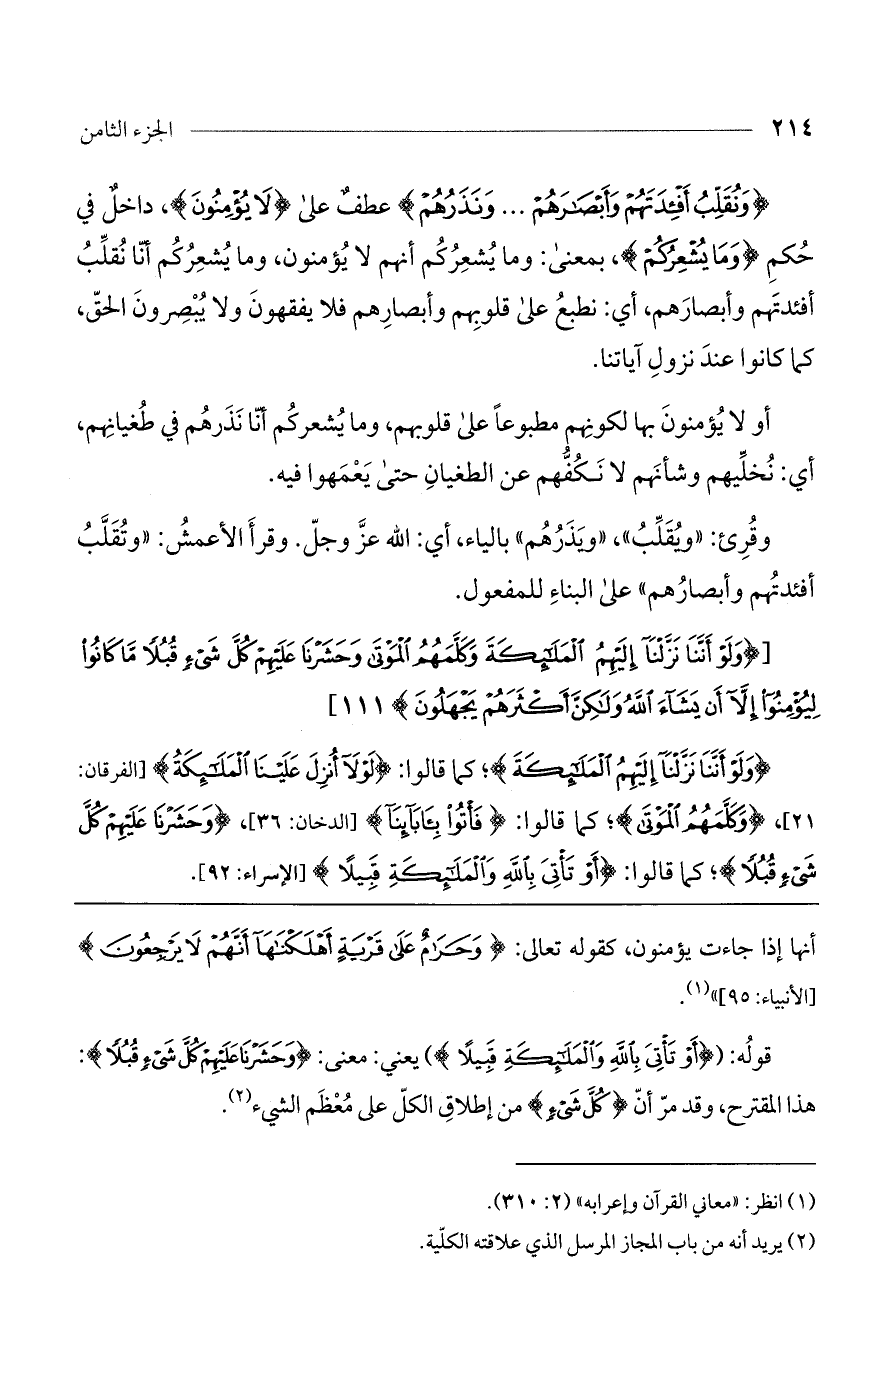 ٢١٤ الجزء الثامن
﴿وَنُقَلِّبُ أَفْـِٔدَتَهُمْ وَأَبْصَـٰرَهُمْ ... وَنَذَرُهُمْ﴾ عطفٌ علىٰ ﴿لَا يُؤْمِنُونَ﴾، داخلٌ في
حُكمِ ﴿وَمَا يُشْعِرُكُمْ﴾، بمعنىٰ: وما يُشعِرُكُم أنهم لا يُؤمنون، وما يُشعِرُكُم أنّا نُقلِّبُ
أفئدتَهم وأبصارَهم، أي: نطبعُ علىٰ قلوبِهم وأبصارِهم فلا يفقهونَ ولا يُبْصِرونَ الحقّ،
كما كانوا عندَ نزولِ آياتنا.
أو لا يُؤمنونَ بها لكونِهم مطبوعاً علىٰ قلوبهم، وما يُشعركُم أنّا نَذَرهُم في طُغيانِهم،
أي: نُخلِّيهم وشأنَهم لا نَكُفُّهم عن الطغيانِ حتىٰ يَعْمَهوا فيه.
وقُرِئ: «ويُقَلِّبُ»، «ويَذَرُهُم» بالياء، أي: الله عزَّ وجلّ. وقرأَ الأعمشُ: «وتُقَلَّبُ
أفئدتُهم وأبصارُهم» علىٰ البناءِ للمفعول.
[﴿وَلَوْ أَنَّنَا نَزَّلْنَآ إِلَيْهِمُ ٱلْمَلَـٰٓئِكَةَ وَكَلَّمَهُمُ ٱلْمَوْتَىٰ وَحَشَرْنَا عَلَيْهِمْ كُلَّ شَىْءٍ قُبُلًا مَّا كَانُوا۟
لِيُؤْمِنُوٓا۟ إِلَّآ أَن يَشَآءَ ٱللَّهُ وَلَـٰكِنَّ أَكْثَرَهُمْ يَجْهَلُونَ﴾ ١١١]
﴿وَلَوْ أَنَّنَا نَزَّلْنَآ إِلَيْهِمُ ٱلْمَلَـٰٓئِكَةَ﴾؛ كما قالوا: ﴿لَوْلَآ أُنزِلَ عَلَيْنَا ٱلْمَلَـٰٓئِكَةُ﴾ [الفرقان:
٢١]، ﴿وَكَلَّمَهُمُ ٱلْمَوْتَىٰ﴾؛ كما قالوا: ﴿فَأْتُوا۟ بِـَٔابَآئِنَآ﴾ [الدخان: ٣٦]، ﴿وَحَشَرْنَا عَلَيْهِمْ كُلَّ
شَىْءٍ قُبُلًا﴾؛ كما قالوا: ﴿أَوْ تَأْتِىَ بِٱللَّهِ وَٱلْمَلَـٰٓئِكَةِ قَبِيلًا﴾ [الإسراء: ٩٢].
أنها إذا جاءت يؤمنون، كقوله تعالى: ﴿وَحَرَٰمٌ عَلَىٰ قَرْيَةٍ أَهْلَكْنَـٰهَآ أَنَّهُمْ لَا يَرْجِعُونَ﴾
[الأنبياء: ٩٥]»(١).
قولُه: (﴿أَوْ تَأْتِىَ بِٱللَّهِ وَٱلْمَلَـٰٓئِكَةِ قَبِيلًا﴾) يعني: معنى: ﴿وَحَشَرْنَا عَلَيْهِمْ كُلَّ شَىْءٍ قُبُلًا﴾:
هذا المقترح، وقد مرّ أنّ ﴿كُلَّ شَىْءٍ﴾ من إطلاقِ الكلّ على مُعْظَم الشيء(٢).
(١) انظر: «معاني القرآن وإعرابه» (٢: ٣١٠).
(٢) يريد أنه من باب المجاز المرسل الذي علاقته الكلّية.